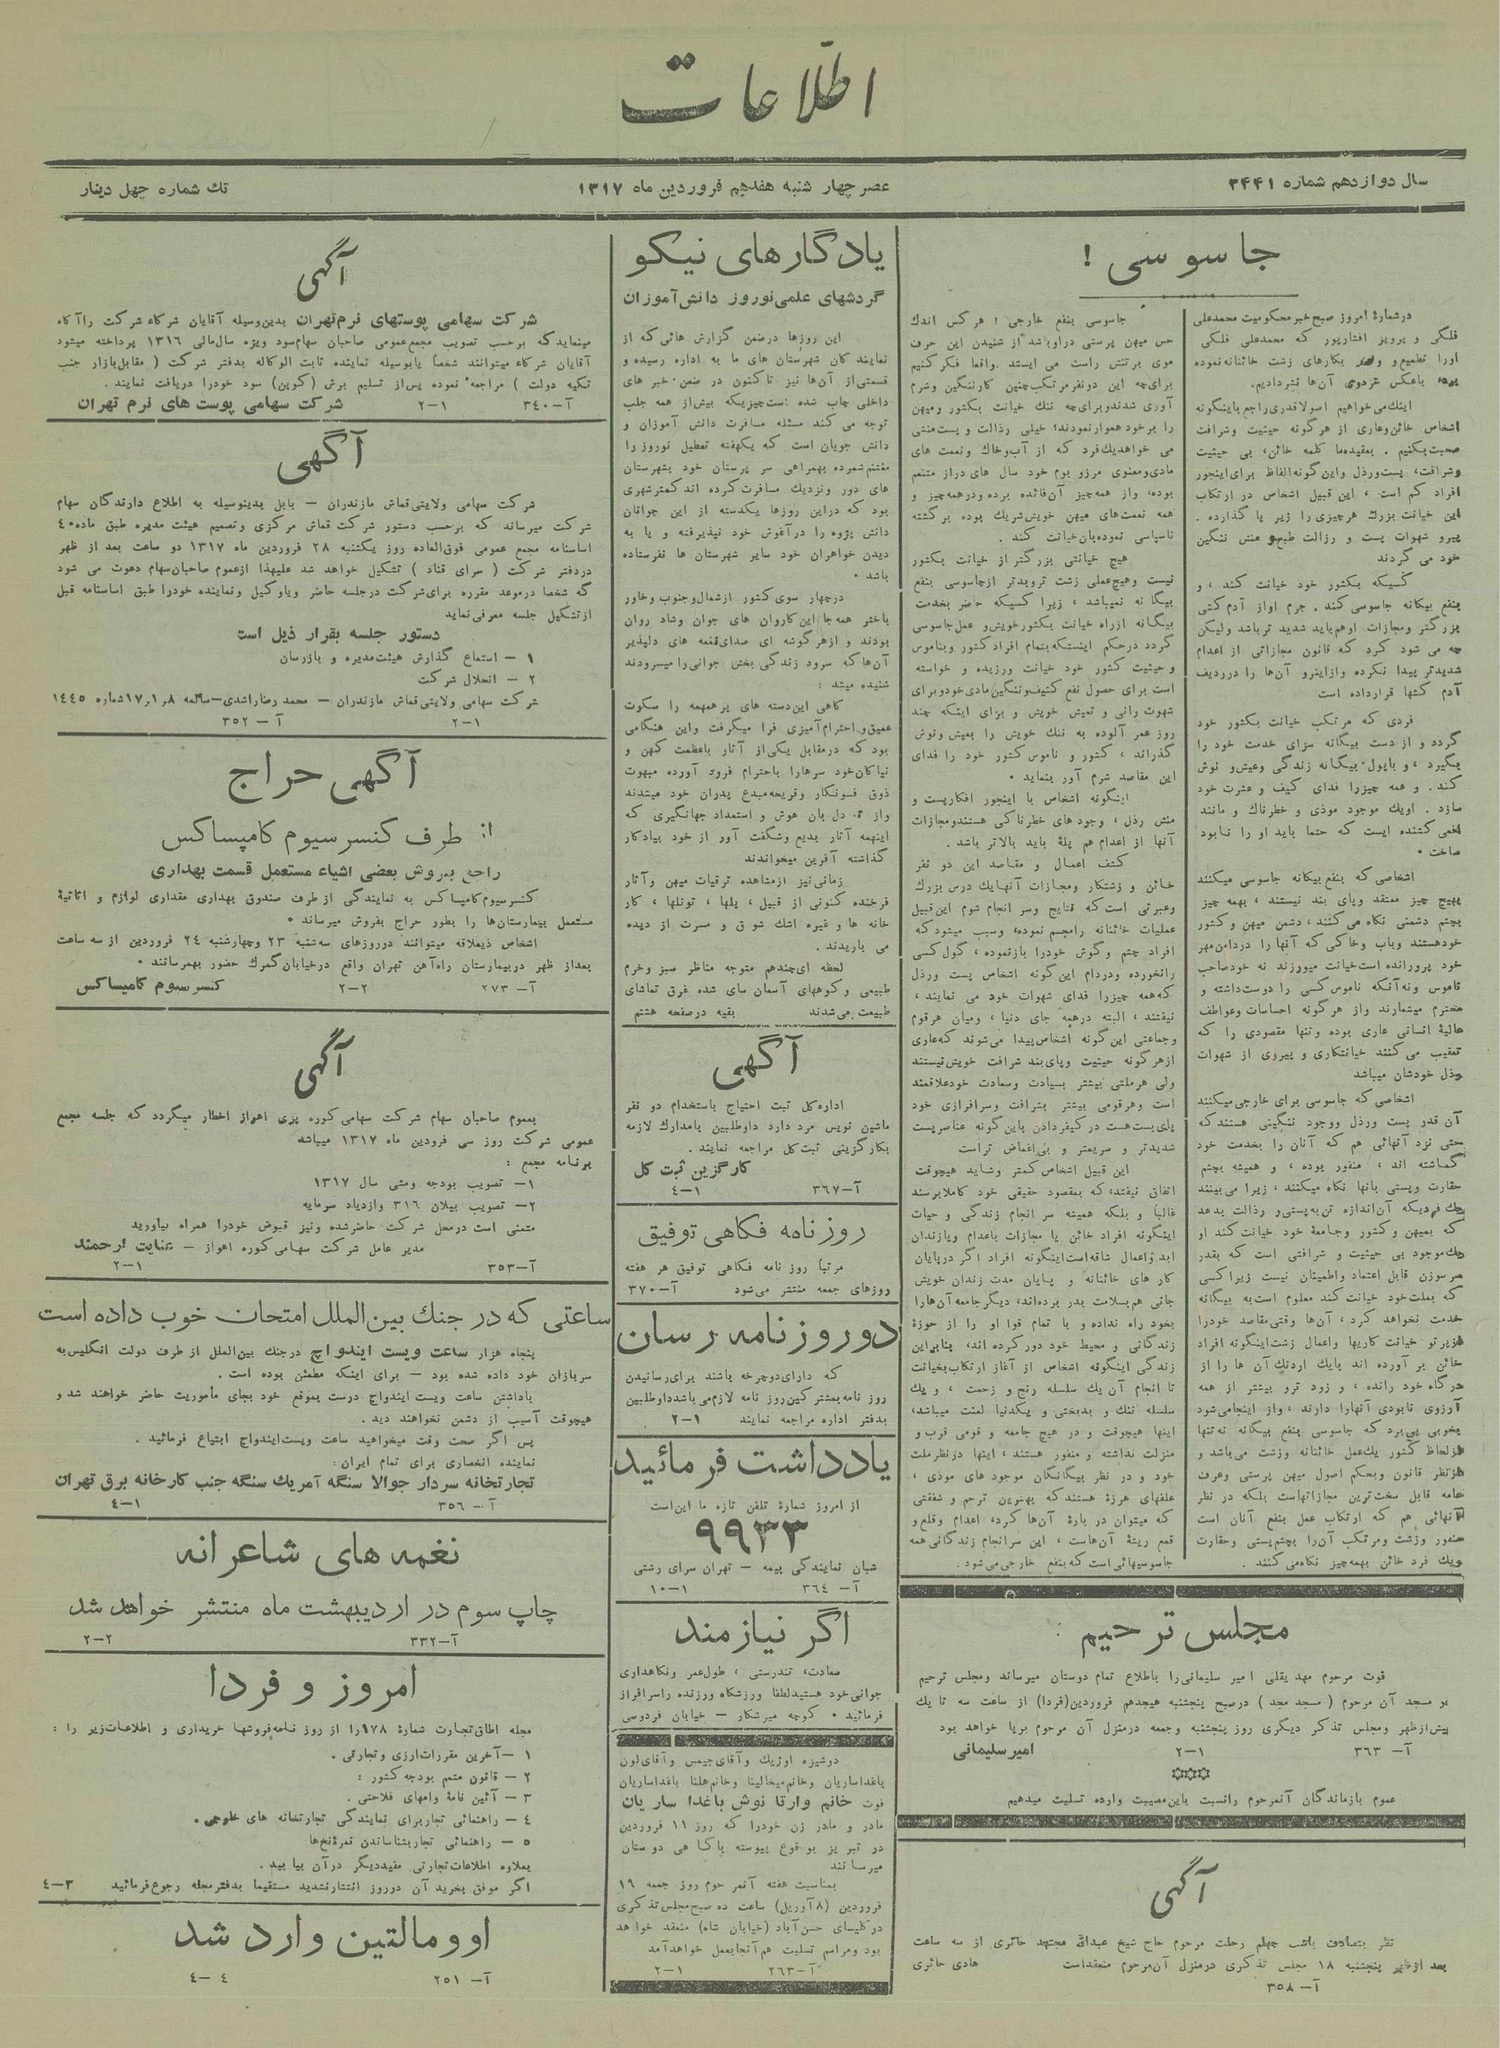 اطلاعات
سال دوازدهم شماره ۳۴۴۱
عصر چهار شنبه هفدهم فروردین ماه ۱۳۱۷
تك شماره چهل دینار
جاسوسی !
درشمارهٔ امروز صبح خبر محکومیت محمدعلی
فلکی و پرویز افشارپور که محمدعلی فلکی
اورا تطمیع و بکارهای زشت خائنانه نموده
بوده باعکس هردوی آن‌ها نشردادیم.
اینك می‌خواهیم اسولا قدری راجع باینگونه
اشخاص خائن وعاری از هرگونه حیثیت وشرافت
صحبت بکنیم . بعقیده ما کلمه خائن، بی حیثیت
وشرافت، پست ورذل واین گونه الفاظ برای اینجور
افراد کم است ، این قبیل اشخاص در ارتکاب
این خیانت بزرك هرچیزی را زیر پا گذارده .
پیرو شهوات پست و رزالت طبع و منش ننگین
خود می گردند
کسیکه بکشور خود خیانت کند ، و
بنفع بیگانه جاسوسی کند . جرم اواز آدم کشی
بزرگتر ومجازات اوهم باید شدید تر باشد ولیکن
چه می شود کرد که قانون مجازاتی از اعدام
شدیدتر پیدا نکرده وازاینرو آن‌ها را درردیف
آدم کشها قرارداده است
فردی که مرتکب خیانت بکشور خود
گردد و از دست بیگانه سزای خدمت خود را
بگیرد ، و باپول بیگانه زندگی وعیش و نوش
کند . و همه چیزرا فدای کیف و عشرت خود
سازد . اویك موجود موذی و خطرناك و مانند
افعی کشنده ایست که حتما باید او را نابود
ساخت •
اشخاصی که بنفع بیگانه جاسوسی میکنند
بهیچ چیز معتقد وپای بند نیستند ، بهمه چیز
بچشم دشمنی نگاه می‌کنند ، دشمن میهن و کشور
خودهستند وباب وخاکی که آنها را دردامن مهر
خود پرورانده است خیانت میورزند نه خودصاحب
ناموس ونه آنکه ناموس کسی را دوست داشته و
محترم میشمارند واز هرگونه احساسات وعواطف
عالیهٔ انسانی عاری بوده وتنها مقصودی را که
تعقیب می‌کنند خیانتکاری و پیروی از شهوات
رذل خودشان میباشد
اشخاصی که جاسوسی برای خارجی میکنند
آن قدر پست ورذل ووجود ننگینی هستند که
حتی نزد آنهائی هم که آنان را بخدمت خود
گماشته اند ، منفور بوده ، و همیشه بچشم
حقارت وپستی بانها نگاه میکنند ، زیرا می‌بینند
یك فردیکه آن‌اندازه تن به پستی و رذالت بدهد
که بمیهن و کشور وجامعهٔ خود خیانت کند او
یك موجود بی حیثیت و شرافتی است که بقدر
سرسوزن قابل اعتماد واطمینان نیست زیرا کسی
که بملت خود خیانت کند معلوم است به بیگانه
خدمت نخواهد کرد ، آن‌ها وقتی مقاصد خودرا
درپرتو خیانت کاریها واعمال زشت اینگونه افراد
خائن بر آورده اند بایك اردنك آن ها را از
درگاه خود رانده ، و زود ترو بیشتر از همه
آرزوی نابودی آنهارا دارند ، واز اینجا می‌شود
بخوبی پی‌برد که جاسوسی بنفع بیگانه نه‌تنها
ازلحاظ کشور یك عمل خائنانه وزشت می‌باشد و
ازنظر قانون وبحکم اصول میهن پرستی وعرف
عامه قابل سخت‌ترین مجازاتهاست بلکه در نظر
آنهائی هم که ارتکاب عمل بنفع آنان است
منفور وزشت ومرتکب آن‌را بچشم پستی وحقارت
ویك فرد خائن بهمه چیز نگاه می کنند .
جاسوسی بنفع خارجی ! هرکس اندك
حس میهن پرستی دراوباشد از شنیدن این حرف
موی برتنش راست می ایستد .واقعا فکر کنیم
برای‌چه این دونفر مرتکب چنین کارننگین وشرم
آوری شدند وبرای‌چه ننك خیانت بکشور ومیهن
را برخود هموار نمودند؟ خیلی رذالت و پست منشی
می خواهد یك فرد که از آب وخاك ونعمت های
مادی ومعنوی مرزو بوم خود سال های دراز متنعم
بوده، واز همه چیز آن فائده برده ودرهمه چیز و
همه نعمت‌های میهن خویش شریك بوده برگشته
ناسپاسی نموده بآن خیانت کند .
هیچ خیانتی بزرگتر از خیانت بکشور
نیست وهیچ عملی زشت تروبدتر ازجاسوسی بنفع
بیگا نه نمیباشد ، زیرا کسیکه حاضر بخدمت
بیگانه ازراه خیانت بکشور خویش و عمل جاسوسی
گردد درحکم اینستکه بتمام افراد کشور وبناموس
و حیثیت کشور خود خیانت ورزیده و خواسته
است برای حصول نفع کثیف وننگین مادی خود وبرای
شهوت رانی و تعیش خویش و برای اینکه چند
روز عمر آلوده به ننك خویش را بعیش ونوش
گذراند ، کشور و ناموس کشور خود را فدای
این مقاصد شرم آور بنماید •
اینگونه اشخاص با اینجور افکارپست و
منش رذل ، وجود های خطرناکی هستند ومجازات
آنها از اعدام هم پلهٔ باید بالاتر باشد .
کشف اعمال و مقاصد این دو نفر
خائن و زشتکار ومجازات آنها یك درس بزرك
وعبرتی است که نتایج وسر انجام شوم این قبیل
عملیات خائنانه رامجسم نموده، وسبب میشود که
افراد چشم و گوش خودرا بازنموده ، گول کسی
رانخورده ودردام این گونه اشخاص پست ورذل
که همه چیزرا فدای شهوات خود می نمایند ،
نیفتند ، البته درهمه جای دنیا ، ومیان هرقوم
وجماعتی این گونه اشخاص پیدا می‌شوند که عاری
ازهرگونه حیثیت وپای بند شرافت خویش نیستند
ولی هرملتی بیشتر بسیادت وسعادت خودعلاقمند
است وهرقومی بیشتر بشرافت وسرافرازی خود
پای‌بست‌هست در کیفردادن باین گونه عناصر پست
شدیدتر و سریعتر و بی‌اغماض تراست
این قبیل اشخاص کمتر وشاید هیچوقت
اتفاق نیفتد، که بمقصود حقیقی خود کاملا برسند
غالباً و بلکه همیشه سر انجام زندگی و حیات
اینگونه افراد خائن یا مجازات باعدام ویازندان
ابد وباعمال شاقه است اینگونه افراد اگر درپایان
کار های خائنانه و پایان مدت زندان خویش
جانی هم بسلامت بدر برده‌اند، دیگر جامعه آن‌هارا
بخود راه نداده و با تمام قوا او را از حوزهٔ
زندگانی و محیط خود دور کرده اند، بنابراین
زندگی اینگونه اشخاص از آغاز ارتکاب بخیانت
تا انجام آن یك سلسله رنج و زحمت ، و یك
سلسله ننك و بدبختی و یکدنیا لعنت میباشد،
اینها هیچوقت و در هیچ جامعه و قومی قرب و
منزلت نداشته و منفور هستند ، اینها درنظر ملت
خود و در نظر بیگانگان موجود های موذی ،
علفهای هرزهٔ هستند که بهترین ترحم و شفقتی
که میتوان در بارهٔ آن‌ها کرد، اعدام وقلع و
قمع ریشهٔ آن‌هاست ، این سرانجام زندگانی همه
جاسوسهائی است که بنفع خارجی می‌شود .
مجلس ترحیم :
فوت مرحوم مهد یقلی امیر سلیمانی را باطلاع تمام دوستان میرساند ومجلس ترحیم
در مسجد آن مرحوم ( مسجد مجد ) درصبح پنجشنبه هیجدهم فروردین(فردا) از ساعت سه تا یك
پیش ازظهر ومجلس تذکر دیگری روز پنجشنبه وجمعه درمنزل آن مرحوم برپا خواهد بود
آ– ۳۶۳ ۱–۲ امیرسلیمانی
عموم بازماندگان آنمرحوم رانسبت باین مصیبت وارده تسلیت میدهیم
آگهی
نظر بتصادف باشب چهلم رحلت مرحوم حاج شیخ عبدالله مجتهد حائری از سه ساعت
بعد ازظهر پنجشنبه ۱۸ مجلس تذکری درمنزل آن مرحوم منعقداست هادی حائری
آ– ۳۵۸
یادگارهای نیکو
گردشهای علمی نوروز دانش‌آموزان
این روزها درضمن گزارش هائی که از
نمایند گان شهرستان های ما به اداره رسیده و
قسمتی‌از آن‌ها نیز تا کنون در ضمن خبر های
داخلی چاپ شده است‌چیزیکه بیش‌از همه جلب
توجه می کند مسئله مسافرت دانش آموزان و
دانش جویان است که یکهفته تعطیل نوروز را
مغتنم شمرده بهمراهی سر پرستان خود بشهرستان
های دور ونزدیك مسافرت کرده اند کمتر شهری
بود که دراین روزها یکدسته از این جوانان
دانش پژوه را درآغوش خود نپذیرفته و یا به
دیدن خواهران خود سایر شهرستان ها نفرستاده
باشد •
درچهار سوی کشور ازشمال وجنوب وخاور
باختر همه جا این کاروان های جوان وشاد روان
بودند و ازهر گوشه ای صدای نغمه های دلپذیر
آن‌ها که سرود زندگی بخش جوانی را میسرودند
شنیده میشد :
گاهی این‌دسته های پر همهمه را سکوت
عمیق و احترام آمیزی فرا میگرفت واین هنگامی
بود که درمقابل یکی از آثار باعظمت کهن و
نیاکان خود سرهارا باحترام فرود آورده مبهوت
ذوق فسونکار وقریحه مبدع پدران خود میشدند
واز ته دل بآن هوش و استعداد جهانگیری که
اینهمه آثار بدیع وشگفت آور از خود بیادگار
گذاشته آفرین میخواندند
زمانی نیز ازمشاهده ترقیات میهن وآثار
فرخنده کنونی از قبیل ، پلها ، تونلها ، کار
خانه ها و غیره اشك شوق و مسرت از دیده
می باریدند .
لحظه ای‌چندهم متوجه مناظر سبز وخرم
طبیعی و کوههای آسمان سای شده غرق تماشای
طبیعت می‌شدند بقیه درصفحه هشتم
آگهی
اداره کل ثبت احتیاج باستخدام دو نفر
ماشین نویس مرد دارد داوطلبین بامدارك لازمه
بکارگزینی ثبت کل مراجعه نمایند .
کارگزین ثبت کل
آ–۳۶۷ ۱–۴
روزنامه فکاهی توفیق
مرتباً روز نامه فکاهی توفیق هر هفته
روزهای جمعه منتشر می‌شود آ–۳۷۰
دوروزنامه رسان
که دارای‌دوچرخه باشند برای‌رسانیدن
روز نامه بمشترکین روز نامه لازم می باشد داوطلبین
بدفتر اداره مراجعه نمایند ۱–۲
یادداشت فرمائید
از امروز شمارهٔ تلفن تازه ما این‌است
۹۹۳۳
شبان نمایندگی بیمه – تهران سرای رشتی
آ– ۳۶۴ ۱–۱۰
اگر نیازمند
سعادت، تندرستی ، طول‌عمر ونگاهداری
جوانی خود هستید لطفا ورزشگاه ورزنده راسرافراز
فرمائید • کوچه میرشکار – خیابان فردوسی
درشیزه اوژیك وآقای جیمس وآقای‌لون
باغداساریان وخانم میخالینا وخانم هلنا باغداساریان
فوت خانم وارتا نوش باغدا ساریان
مادر و مادر زن خودرا که روز ۱۱ فروردین
در تبریز بوقوع پیوسته باگا هی دوستان
میرسانند
بمناسبت هفته آنمرحوم روز جمعه ۱۹
فروردین (۸آوریل) ساعت ده صبح مجلس تذکری
در کلیسای حسن‌آباد (خیابان شاه) منعقد خواهد
بود ومراسم تسلیت هم آنجا بعمل خواهدآمد
آ–۲۶۳ ۱–۲
آگهی
شرکت سهامی پوستهای نرم تهران بدین‌وسیله آقایان شرکاء شرکت راآگاه
مینماید که برحسب تصویب مجمع عمومی صاحبان سهام سود ویژه سال مالی ۱۳۱۶ پرداخته میشود
آقایان شرکاء میتوانند شخصاً یا بوسیله نماینده ثابت الوکاله بدفتر شرکت ( مقابل بازار جنب
تکیه دولت ) مراجعه نموده پس‌از تسلیم برش (کوپن) سود خودرا دریافت نمایند .
آ–۳۴۰ ۱–۲ شرکت سهامی پوست های نرم تهران
آگهی
شرکت سهامی ولایتی قماش مازندران – بابل بدینوسیله به اطلاع دارندگان سهام
شرکت میرساند که برحسب دستور شرکت قماش مرکزی وتصمیم هیئت مدیره طبق ماده ۴۰
اساسنامه مجمع عمومی فوق‌العاده روز یکشنبه ۲۸ فروردین ماه ۱۳۱۷ دو ساعت بعد از ظهر
دردفتر شرکت ( سرای قناد ) تشکیل خواهد شد علیهذا ازعموم صاحبان سهام دعوت می شود
که شخصا درموعد مقرره برای شرکت درجلسه حاضر ویاوکیل ونماینده خودرا طبق اساسنامه قبل
ازتشکیل جلسه معرفی‌نماید
دستور جلسه بقرار ذیل است
۱ – استماع گذارش هیئت مدیره و بازرسان
۲ – انحلال شرکت
شرکت سهامی ولایتی‌قماش مازندران – محمد رضاراشدی ۱۷٫۱٫۸ شماره ۱۴۴۵
۱–۲ آ – ۳۵۲
آگهی حراج
از طرف کنسرسیوم کامپساکس
راجع بفروش بعضی اشیاء مستعمل قسمت بهداری
کنسرسیوم کامپساکس به نمایندگی از طرف صندوق بهداری مقداری لوازم و اثاثیهٔ
مستعمل بیمارستان‌ها را بطور حراج بفروش میرساند •
اشخاص ذیعلاقه میتوانند درروزهای سه‌شنبه ۲۳ وچهارشنبه ۲۴ فروردین از سه ساعت
بعداز ظهر دربیمارستان راه‌آهن تهران واقع درخیابان گمرك حضور بهمرسانند •
آ– ۲۷۳ ۲–۲ کنسرسیوم کامپساکس
آگهی
بعموم صاحبان سهام شرکت سهامی کوره پزی اهواز اخطار میگردد که جلسه مجمع
عمومی شرکت روز سی فرودین ماه ۱۳۱۷ میباشد
برنامه مجمع :
۱– تصویب بودجه ومشی سال ۱۳۱۷
۲– تصویب بیلان ۳۱۶ وازدیاد سرمایه
متمنی است درمحل شرکت حاضرشده ونیز قبوض خودرا همراه بیاورید
مدیر عامل شرکت سهامی کوره اهواز – عنایت ارجمند
آ–۳۵۳ ۱–۲
ساعتی که در جنك بین‌الملل امتحان خوب داده است
پنجاه هزار ساعت ویست ایندواچ درجنك بین‌الملل از طرف دولت انگلیس به
سربازان خود داده شده بود – برای اینکه مطمئن بوده است .
باداشتن ساعت ویست ایندواچ درست بموقع خود بجای مأموریت حاضر خواهند شد و
هیچوقت آسیب از دشمن نخواهند دید .
پس اگر صحت وقت میخواهید ساعت ویست‌ایندواچ ابتیاع فرمائید .
نماینده انحصاری برای تمام ایران :
تجارتخانه سردار جوالا سنگه آمریك سنگه جنب کارخانه برق تهران
آ– ۳۵۶ ۱–۴
نغمه های شاعرانه
چاپ سوم در اردیبهشت ماه منتشر خواهد شد
آ–۳۳۲ ۲–۲
امروز و فردا
مجله اطاق تجارت شمارهٔ ۱۷۸را از روز نامه فروشها خریداری و اطلاعات زیر را :
۱ –آخرین مقررات ارزی وتجارتی .
۲ – قانون متمم بودجه کشور :
۳ – آئین نامهٔ وامهای فلاحتی .
۴ – راهنمائی تجاربرای نمایندگی تجارتخانه های خارجی .
۵ – راهنمائی تجاربشناساندن نمرهٔ نخ‌ها
بعلاوه اطلاعات تجارتی مفیددیگر درآن بیا بید .
اگر موفق بخرید آن دوروز انتشارنشدید مستقیما بدفتر مجله رجوع فرمائید ۳–۴
اوومالتین وارد شد
آ– ۲۵۱ ۴–۴